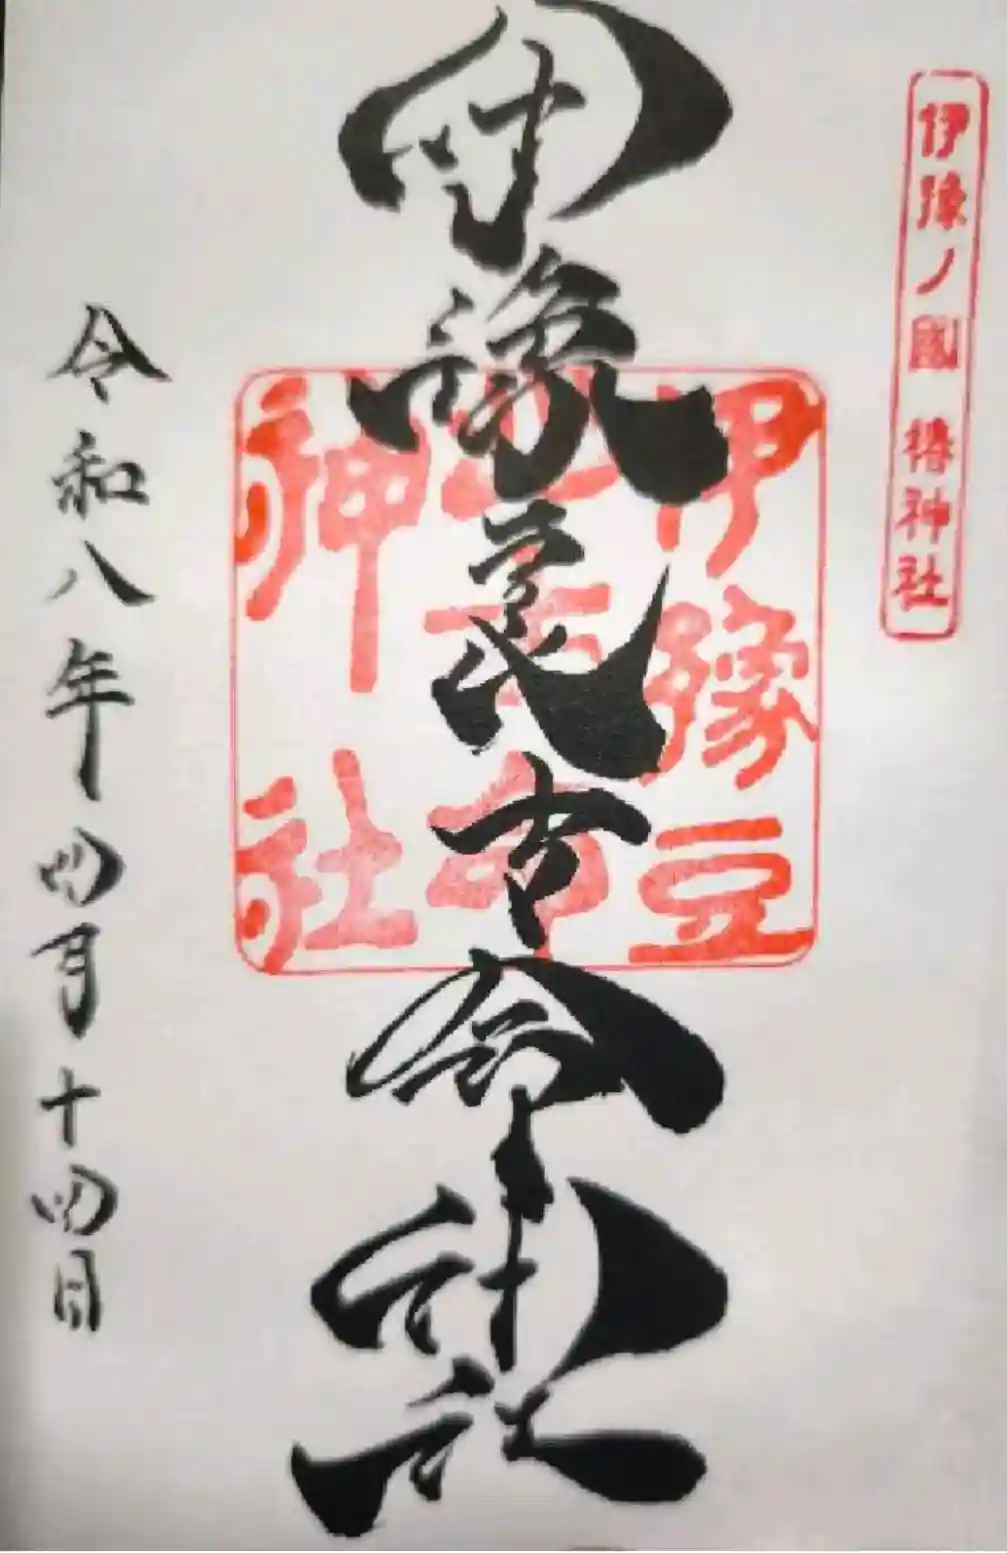 伊豫ノ國 椿神社
伊豫豆比古命神社
伊豫豆
比古命
神社
令和八年四月十四日